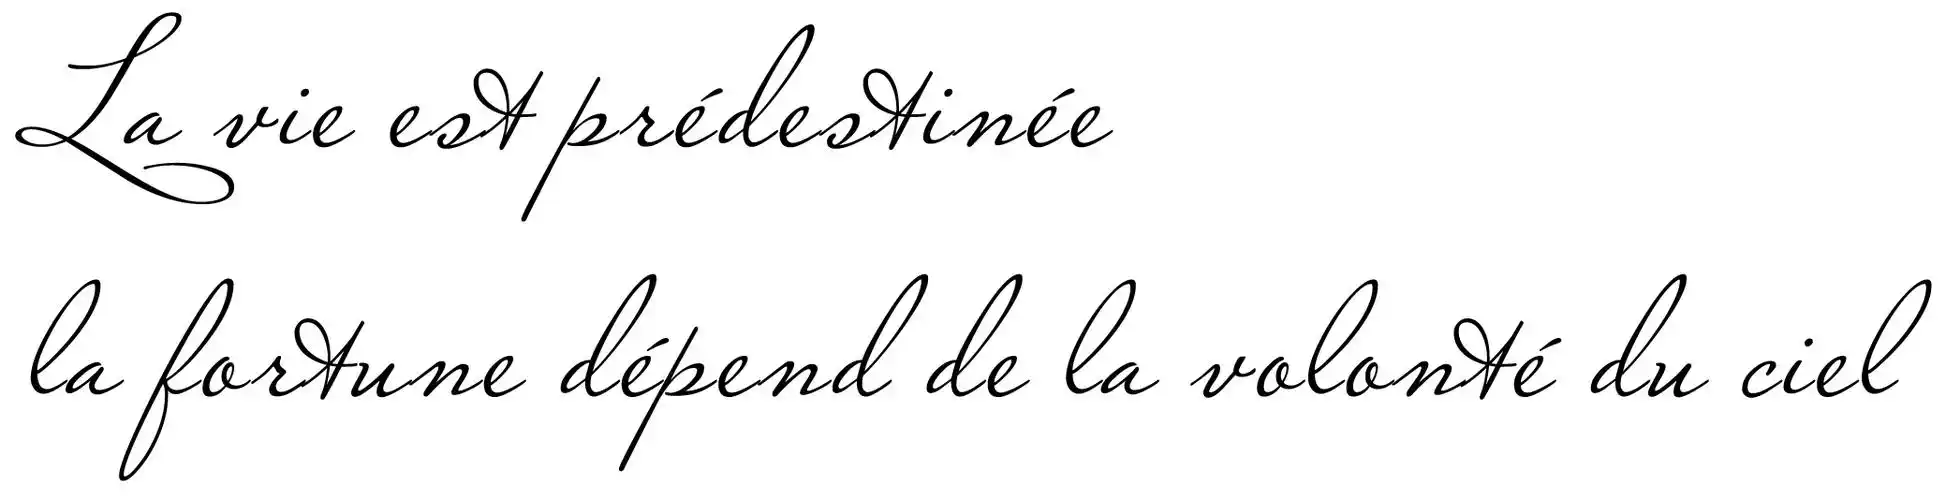 La vie est prédestinée
la fortune dépend de la volonté du ciel